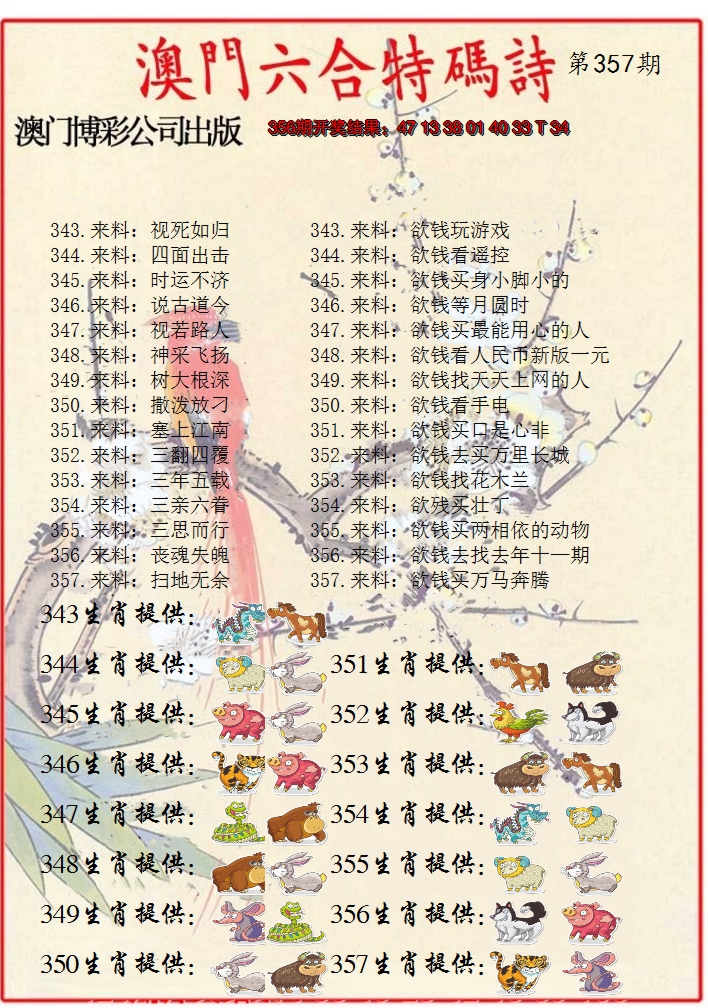 澳門六合特碼詩 第357期
澳门博彩公司出版 356期开奖结果：47 13 38 01 40 33 T 34
343.来料：视死如归 343.来料：欲钱玩游戏
344.来料：四面出击 344.来料：欲钱看遥控
345.来料：时运不济 345.来料：欲钱买身小脚小的
346.来料：说古道今 346.来料：欲钱等月圆时
347.来料：视若路人 347.来料：欲钱买最能用心的人
348.来料：神采飞扬 348.来料：欲钱看人民币新版一元
349.来料：树大根深 349.来料：欲钱找天天上网的人
350.来料：撒泼放刁 350.来料：欲钱看手电
351.来料：塞上江南 351.来料：欲钱买口是心非
352.来料：三翻四覆 352.来料：欲钱去买万里长城
353.来料：三年五载 353.来料：欲钱找花木兰
354.来料：三亲六眷 354.来料：欲残买壮丁
355.来料：三思而行 355.来料：欲钱买两相依的动物
356.来料：丧魂失魄 356.来料：欲钱去找去年十一期
357.来料：扫地无余 357.来料：欲钱买万马奔腾
343生肖提供：
344生肖提供： 351生肖提供：
345生肖提供： 352生肖提供：
346生肖提供： 353生肖提供：
347生肖提供： 354生肖提供：
348生肖提供： 355生肖提供：
349生肖提供： 356生肖提供：
350生肖提供： 357生肖提供：